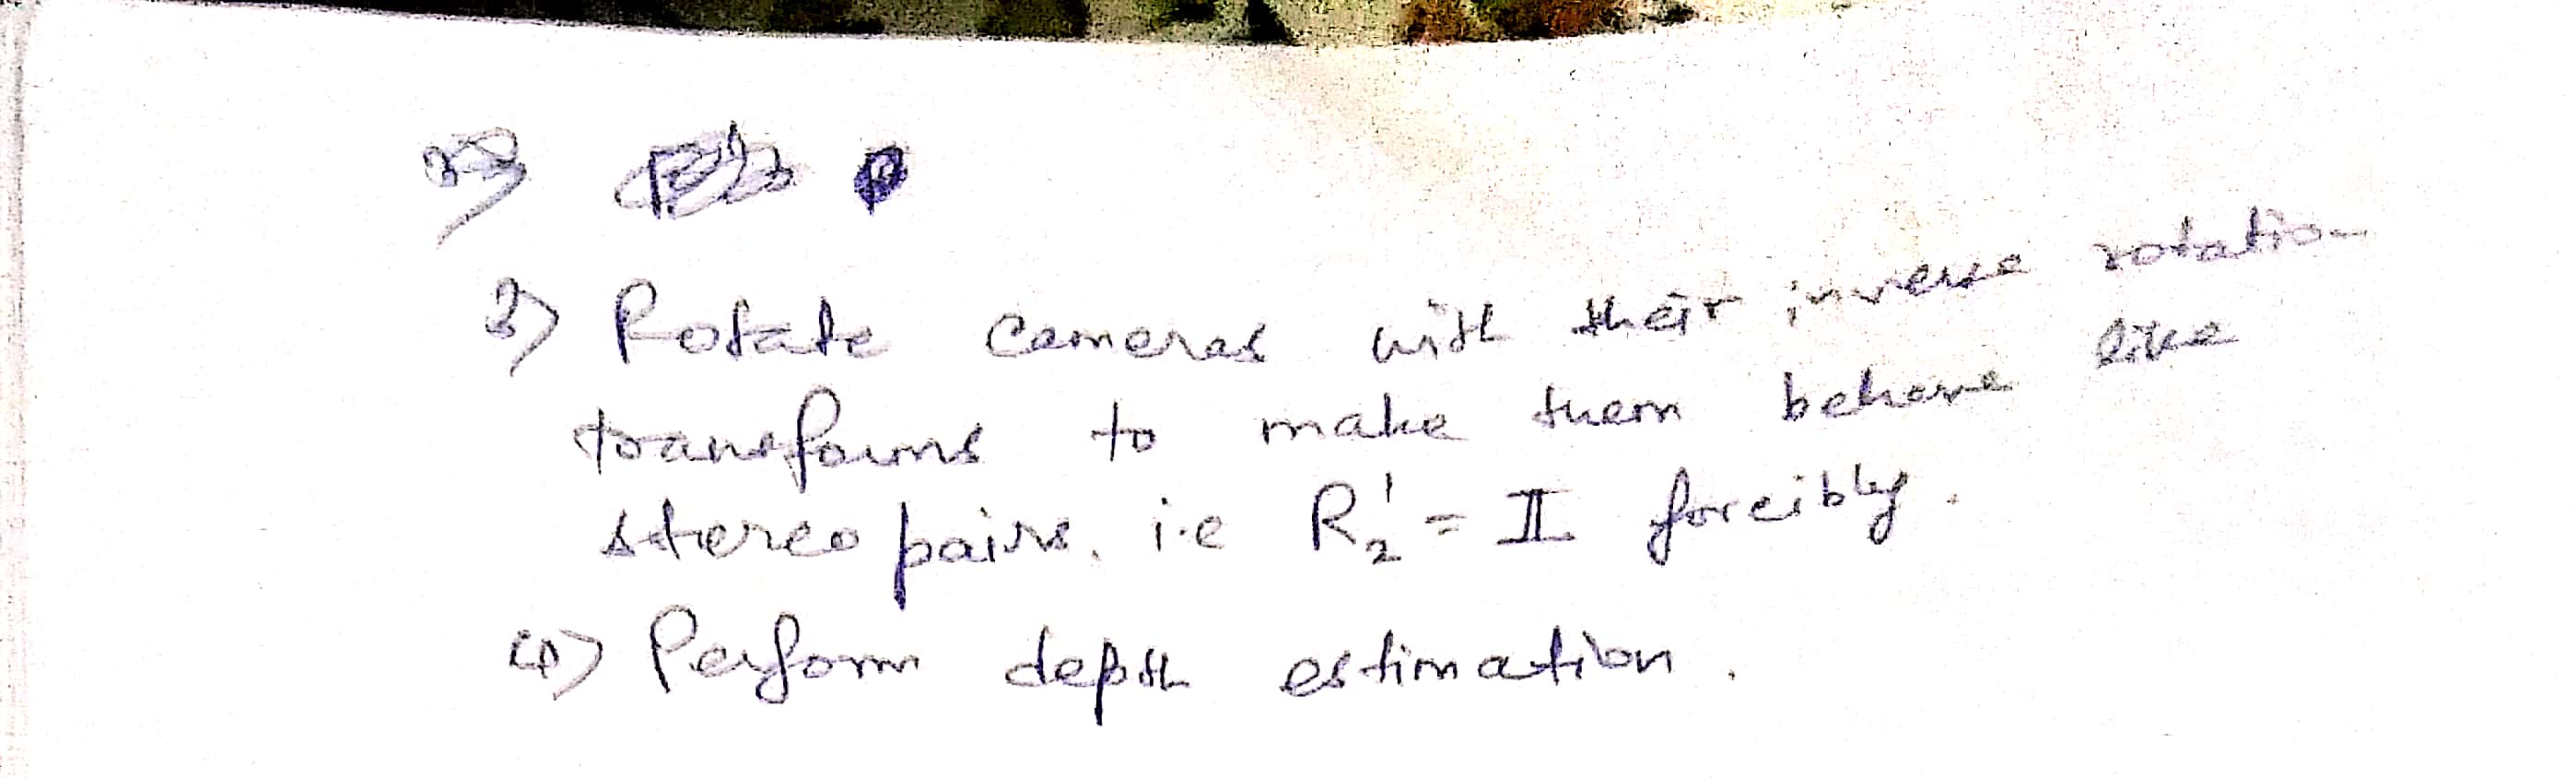 3) Rotate cameras with their inverse rotation
transforms to make them behave like
stereo pairs. i.e R₂' = II forcibly.
4) Perform depth estimation.